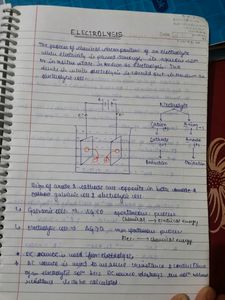 ELECTROLYSIS
The process of chemical decomposition of an electrolyte
when electricity is passed through its aqueous soln
or in molten state is known as electrolysis. The
device in which electrolysis is carried out is known as
electrolytic cell.
Electrolyte
Cation
Anion
Cathode
Anode
Reduction
Oxidation
Sign of anode & cathode are opposite in both
galvanic cell & electrolytic cell.
Galvanic cell → spontaneous process
Chemical → Electrical energy
electrolytic cell → non spontaneous process
Elec. → chemical energy
DC source is used for electrolysis.
AC source is used to measure resistance & conductance
of an electrolytic cell
resistance is to be calculated